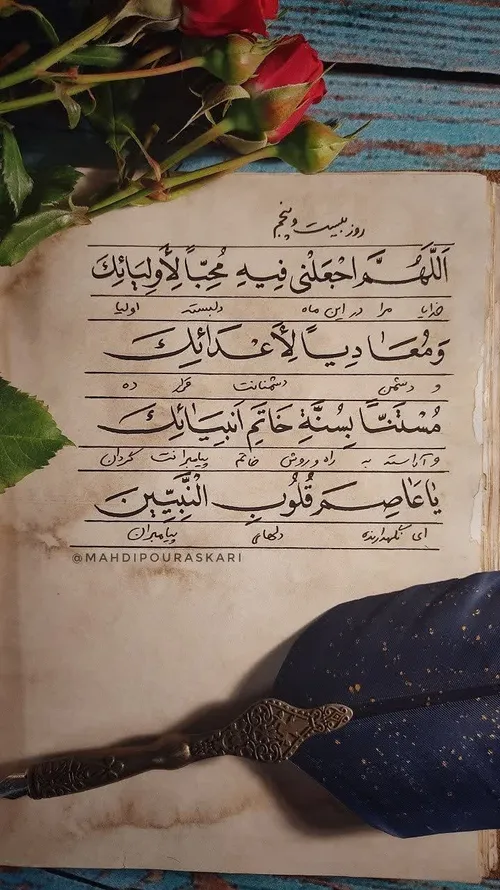 روز بیست و پنجم
اَللَّهُمَّ اجْعَلْنی فیهِ مُحِبّاً لِأَوْلِیَائِكَ
خدایا مرا در این ماه دلبسته اولیا
وَمُعَادِیاً لِأَعْدَائِكَ
و دشمن دشمنانت قرار ده
مُسْتَنّاً بِسُنَّةِ خَاتَمِ اَنبِیَائِكَ
و آراسته به راه و روش خاتم پیامبرانت گردان
یَا عَاصِمَ قُلُوبِ النَّبِیِّینَ
ای نگهدارنده دلهای پیامبران
@MAHDIPOURASKARI